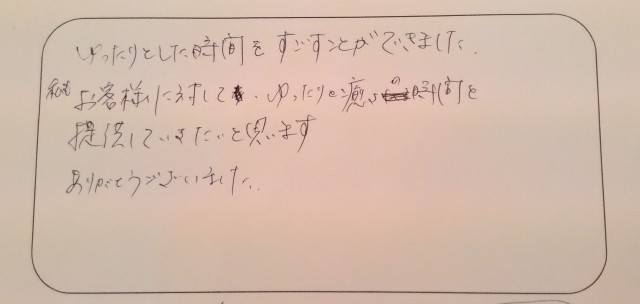 ゆったりとした時間をすごすことができました。
私も お客様に対して、ゆったりと癒しの時間を
提供していきたいと思います
ありがとうございました。